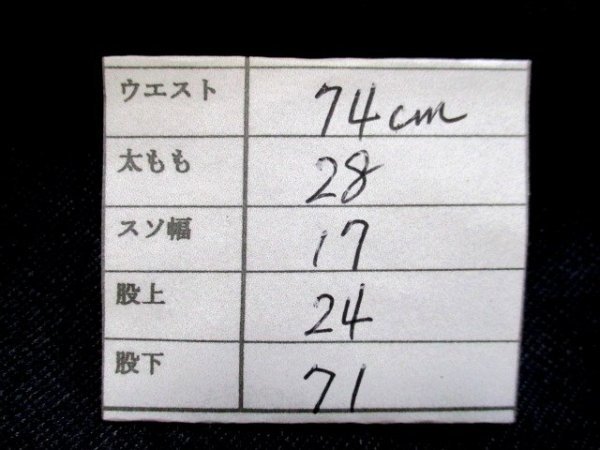 ウエスト 74cm
太もも 28
スソ幅 17
股上 24
股下 71